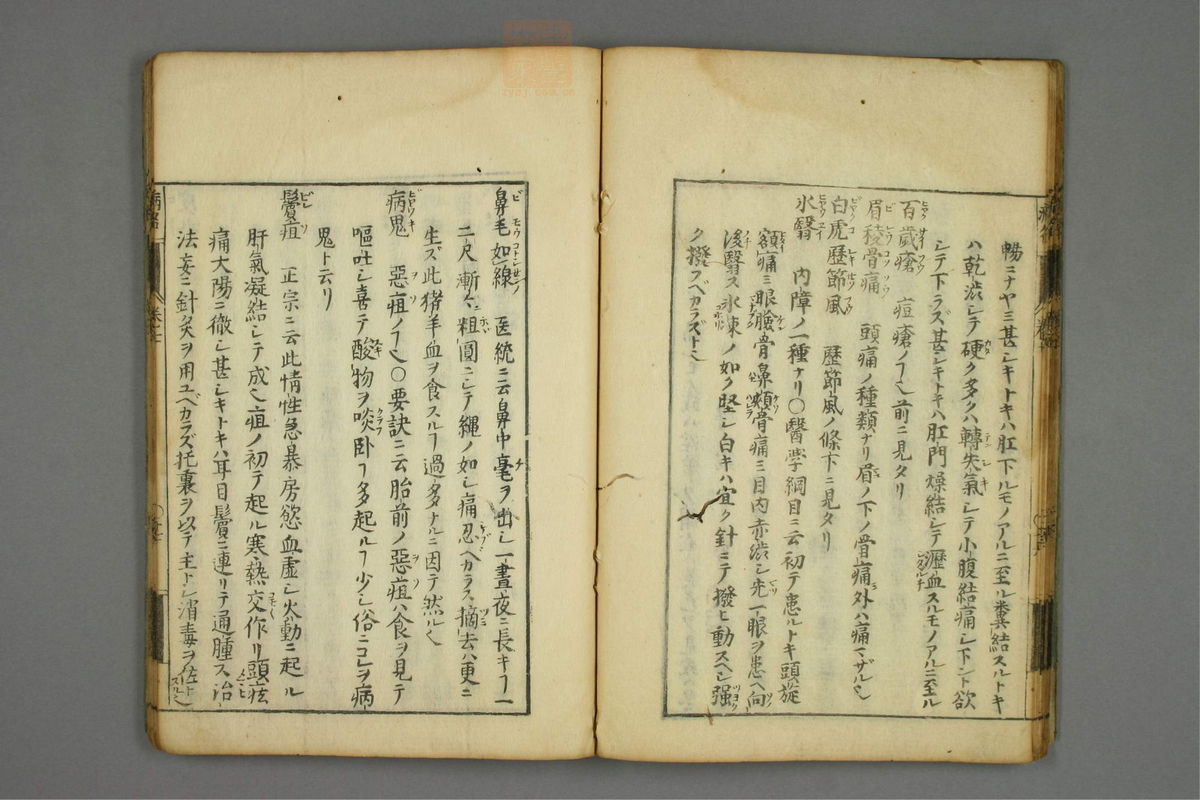 暢ニナヤミ甚シキトキハ肛下ルモノアルニ至ル糞結スルトキ
ハ乾渋シテ硬ク多クハ轉失氣シテ小腹結痛シ下ント欲
シテ下ラズ甚シキトキハ肛門燥結シテ瀝血スルモノアルニ至ル
百歲瘡 痘瘡ノヿ前ニ見タリ
眉稜骨痛 頭痛ノ種類ナリ眉ノ下ノ骨痛外ハ痛マザルヿ
白虎歷節風 歷節風ノ條下ニ見タリ
氷翳 内障ノ一種ナリ〇醫学綱目ニ云初テ患ルトキ頭旋
額痛ミ眼瞼骨鼻頰骨痛ミ目内赤渋シ先一眼ヲ患ヘ向
後翳ス氷凍ノ如ク堅シ白キハ宜ク針ニテ撥ヒ動スヘシ强
ク撥フベカラズト云
鼻毛如線 医統ニ云鼻中毫ヲ出シ一晝夜ニ長キヿ一
二尺漸々粗圓ニシテ縄ノ如シ痛忍ヘカラス摘去ハ更ニ
生ズ此猪羊血ヲ食スルヿ過多ナルニ因テ然ルヿ
病鬼 惡疽ノヿ〇要訣ニ云胎前ノ惡疽ハ食ヲ見テ
嘔吐シ喜テ酸物ヲ啖卧ヿ多起ルヿ少シ俗ニコレヲ病
鬼ト云リ
鬢疽 正宗ニ云此情性急暴房慾血虚シ火動ニ起ル
肝氣凝結シテ成ヿ疽ノ初テ起ル寒熱交作リ頭眩
痛大陽ニ徹シ甚シキトキハ耳目鬢ニ連リテ通腫ス治
法妄ニ針灸ヲ用ユベカラズ托裏ヲ以テ主トシ消毒ヲ佐トスルヿ
zycj.com.cn